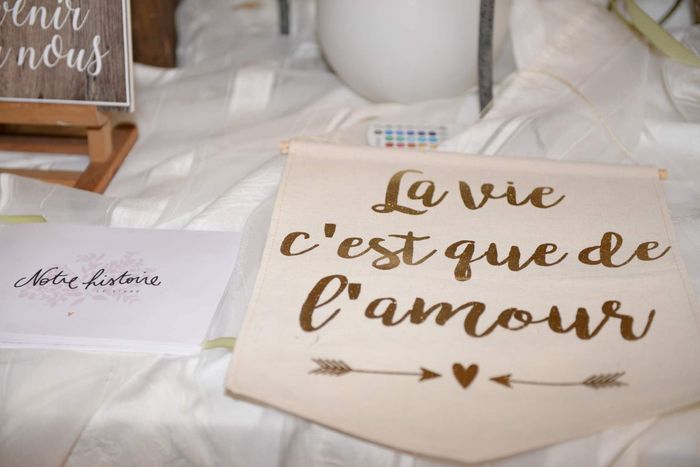 venir
nous
Notre histoire
La vie
c'est que de
l'amour